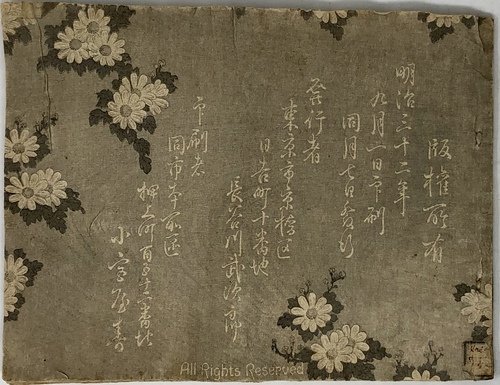 版権所有
明治三十二年
九月一日印刷
同月七日発行
発行者
東京市京橋区
日吉町十番地
長谷川武次郎
印刷者
同市本所区
押上町百五十六番地
小宮屋壽
All Rights Reserved